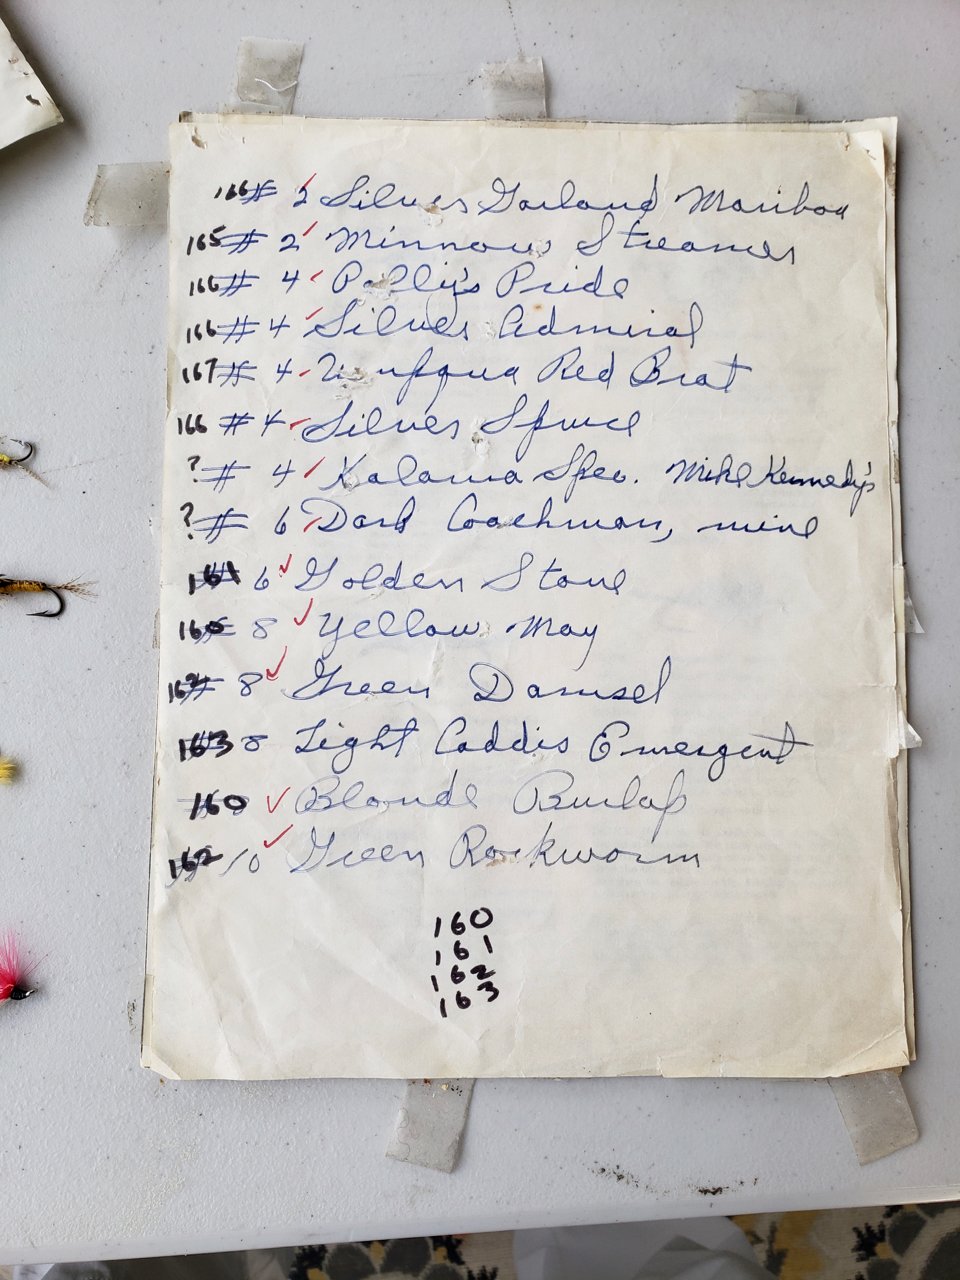 166 # 2 ✓ Silver Garland Maribou
165 # 2 ✓ Minnow Streamer
166 # 4 ✓ Polly's Pride
166 # 4 ✓ Silver Admiral
167 # 4 ✓ Umpqua Red Brat
166 # 4 ✓ Silver Spruce
? # 4 ✓ Kalama Spec. Mike Kennedy's
? # 6 ✓ Dark Coachman, mine
161 # 6 ✓ Golden Stone
160 # 8 ✓ Yellow May
162 # 8 ✓ Green Damsel
163 # 8 Light Caddis Emergent
160 # 8 ✓ Blonde Burlap
162 # 10 ✓ Green Rockworm
160
161
162
163